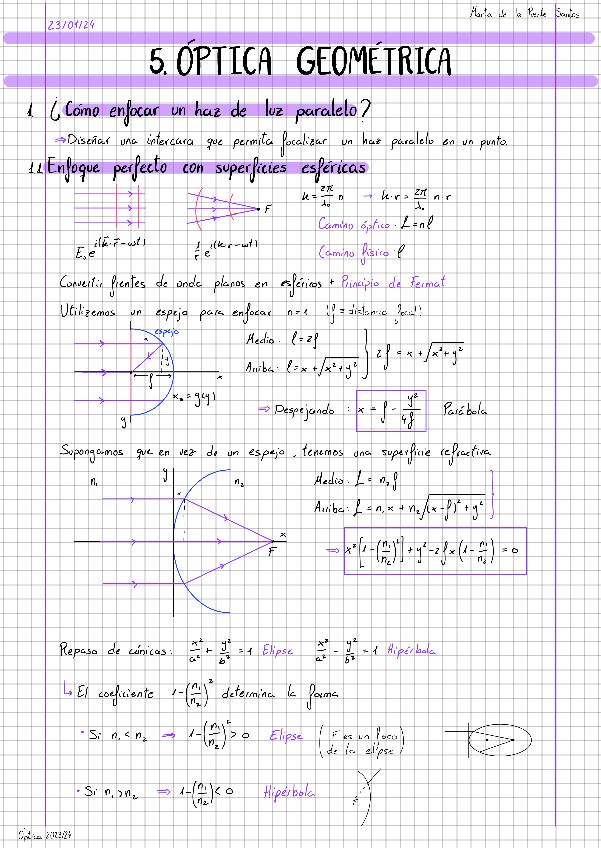 Marta de la Puente Santos
23/01/24
5. ÓPTICA GEOMÉTRICA
1. ¿Cómo enfocar un haz de luz paralelo?
⇒ Diseñar una intercara que permita focalizar un haz paralelo en un punto.
1.1 Enfoque perfecto con superficies esféricas
F
k = 2π/λ₀ n → k·r = 2π/λ₀ n·r
Camino óptico: L = nl
E₀ e^{i(k·r-wt)} 1/r e^{i(k·r-wt)} Camino físico l
Convertir frentes de onda planos en esféricos + Principio de Fermat
Utilizemos un espejo para enfocar n=1 (f = distancia focal)
espejo
x
y
f
x
x₀ = g(y)
y
Medio: l = 2f
Arriba: l = x + √(x²+y²) } 2f = x + √(x²+y²)
⇒ Despejando: x = f - y²/4f Parábola
Supongamos que en vez de un espejo, tenemos una superficie refractiva
n₁ y n₂
x
x
F
Medio: L = n₂f
Arriba: L = n₁x + n₂√((x-f)²+y²) }
⇒ x²[1-(n₁/n₂)²] + y² - 2fx(1 - n₁/n₂) = 0
Repaso de cónicas: x²/a² + y²/b² = 1 Elipse x²/a² - y²/b² = 1 Hipérbola
↳ El coeficiente 1-(n₁/n₂)² determina la forma
• Si n₁ < n₂ ⇒ 1-(n₁/n₂)² > 0 Elipse (F es un foco de la elipse)
• Si n₁ > n₂ ⇒ 1-(n₁/n₂) < 0 Hipérbola
F
Óptica 2023/24